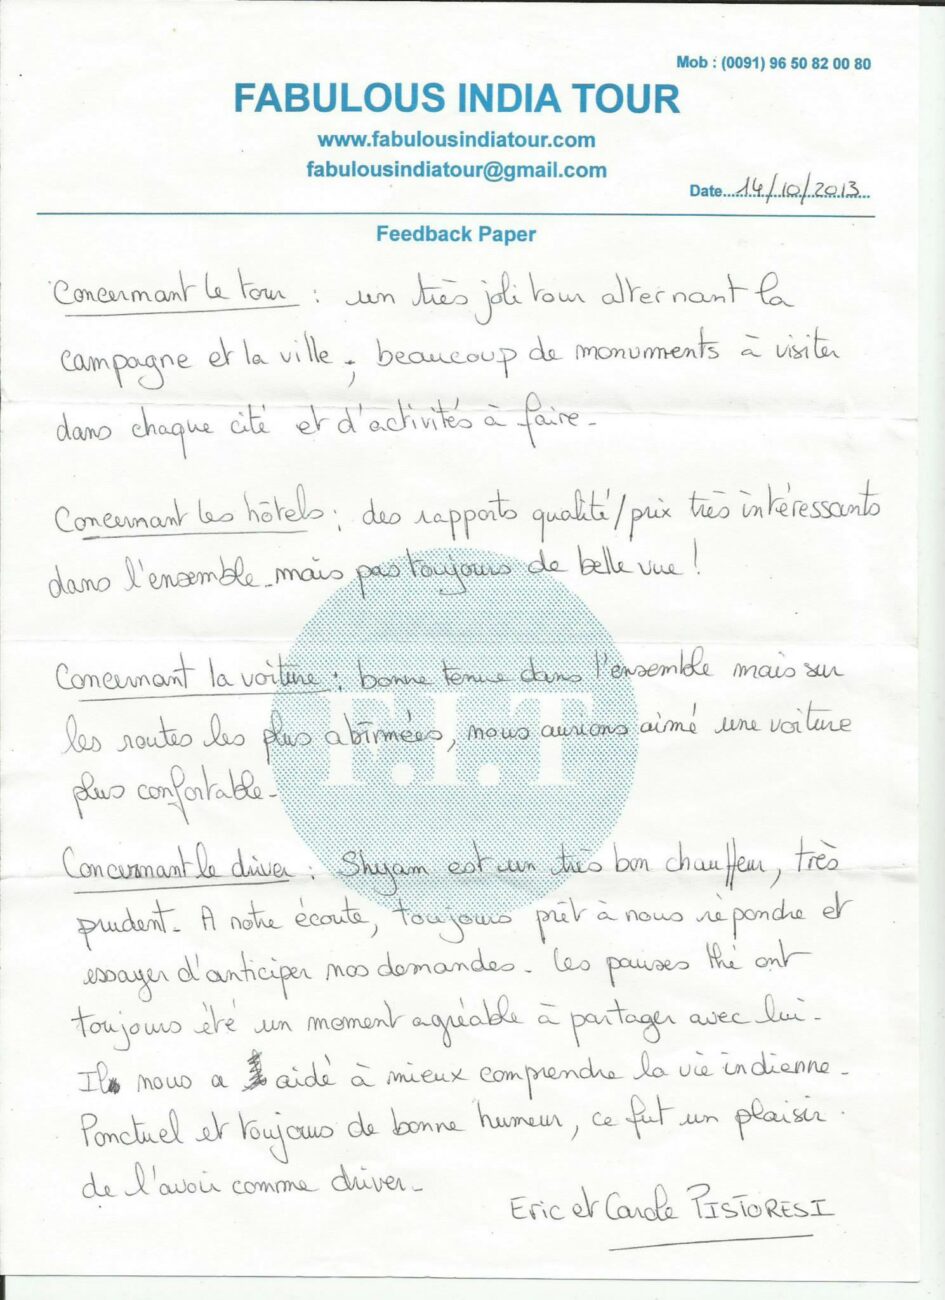 Mob : (0091) 96 50 82 00 80
FABULOUS INDIA TOUR
www.fabulousindiatour.com
fabulousindiatour@gmail.com
Date...14/10/2013...
Feedback Paper
Concernant le tour : un très joli tour alternant la
campagne et la ville ; beaucoup de monuments à visiter
dans chaque cité et d'activités à faire.
Concernant les hôtels : des rapports qualité/prix très intéressants
dans l'ensemble mais pas toujours de belle vue !
F.I.T
Concernant la voiture : bonne tenue dans l'ensemble mais sur
les routes les plus abîmées, nous aurions aimé une voiture
plus confortable.
Concernant le driver : Shyam est un très bon chauffeur, très
prudent. A notre écoute, toujours prêt à nous répondre et
essayer d'anticiper nos demandes. Les pauses thé ont
toujours été un moment agréable à partager avec lui.
Il nous a aidé à mieux comprendre la vie indienne.
Ponctuel et toujours de bonne humeur, ce fut un plaisir
de l'avoir comme driver.
Eric et Carole PISTORESI